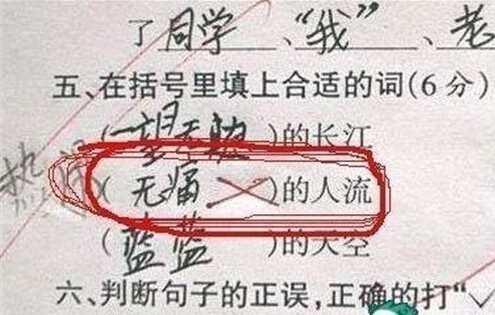 了同学、“我”、老
五、在括号里填上合适的词(6分)
(一望无 )的长江
热闹
(无痛 )的人流
(蓝蓝 )的天空
六、判断句子的正误,正确的打“√